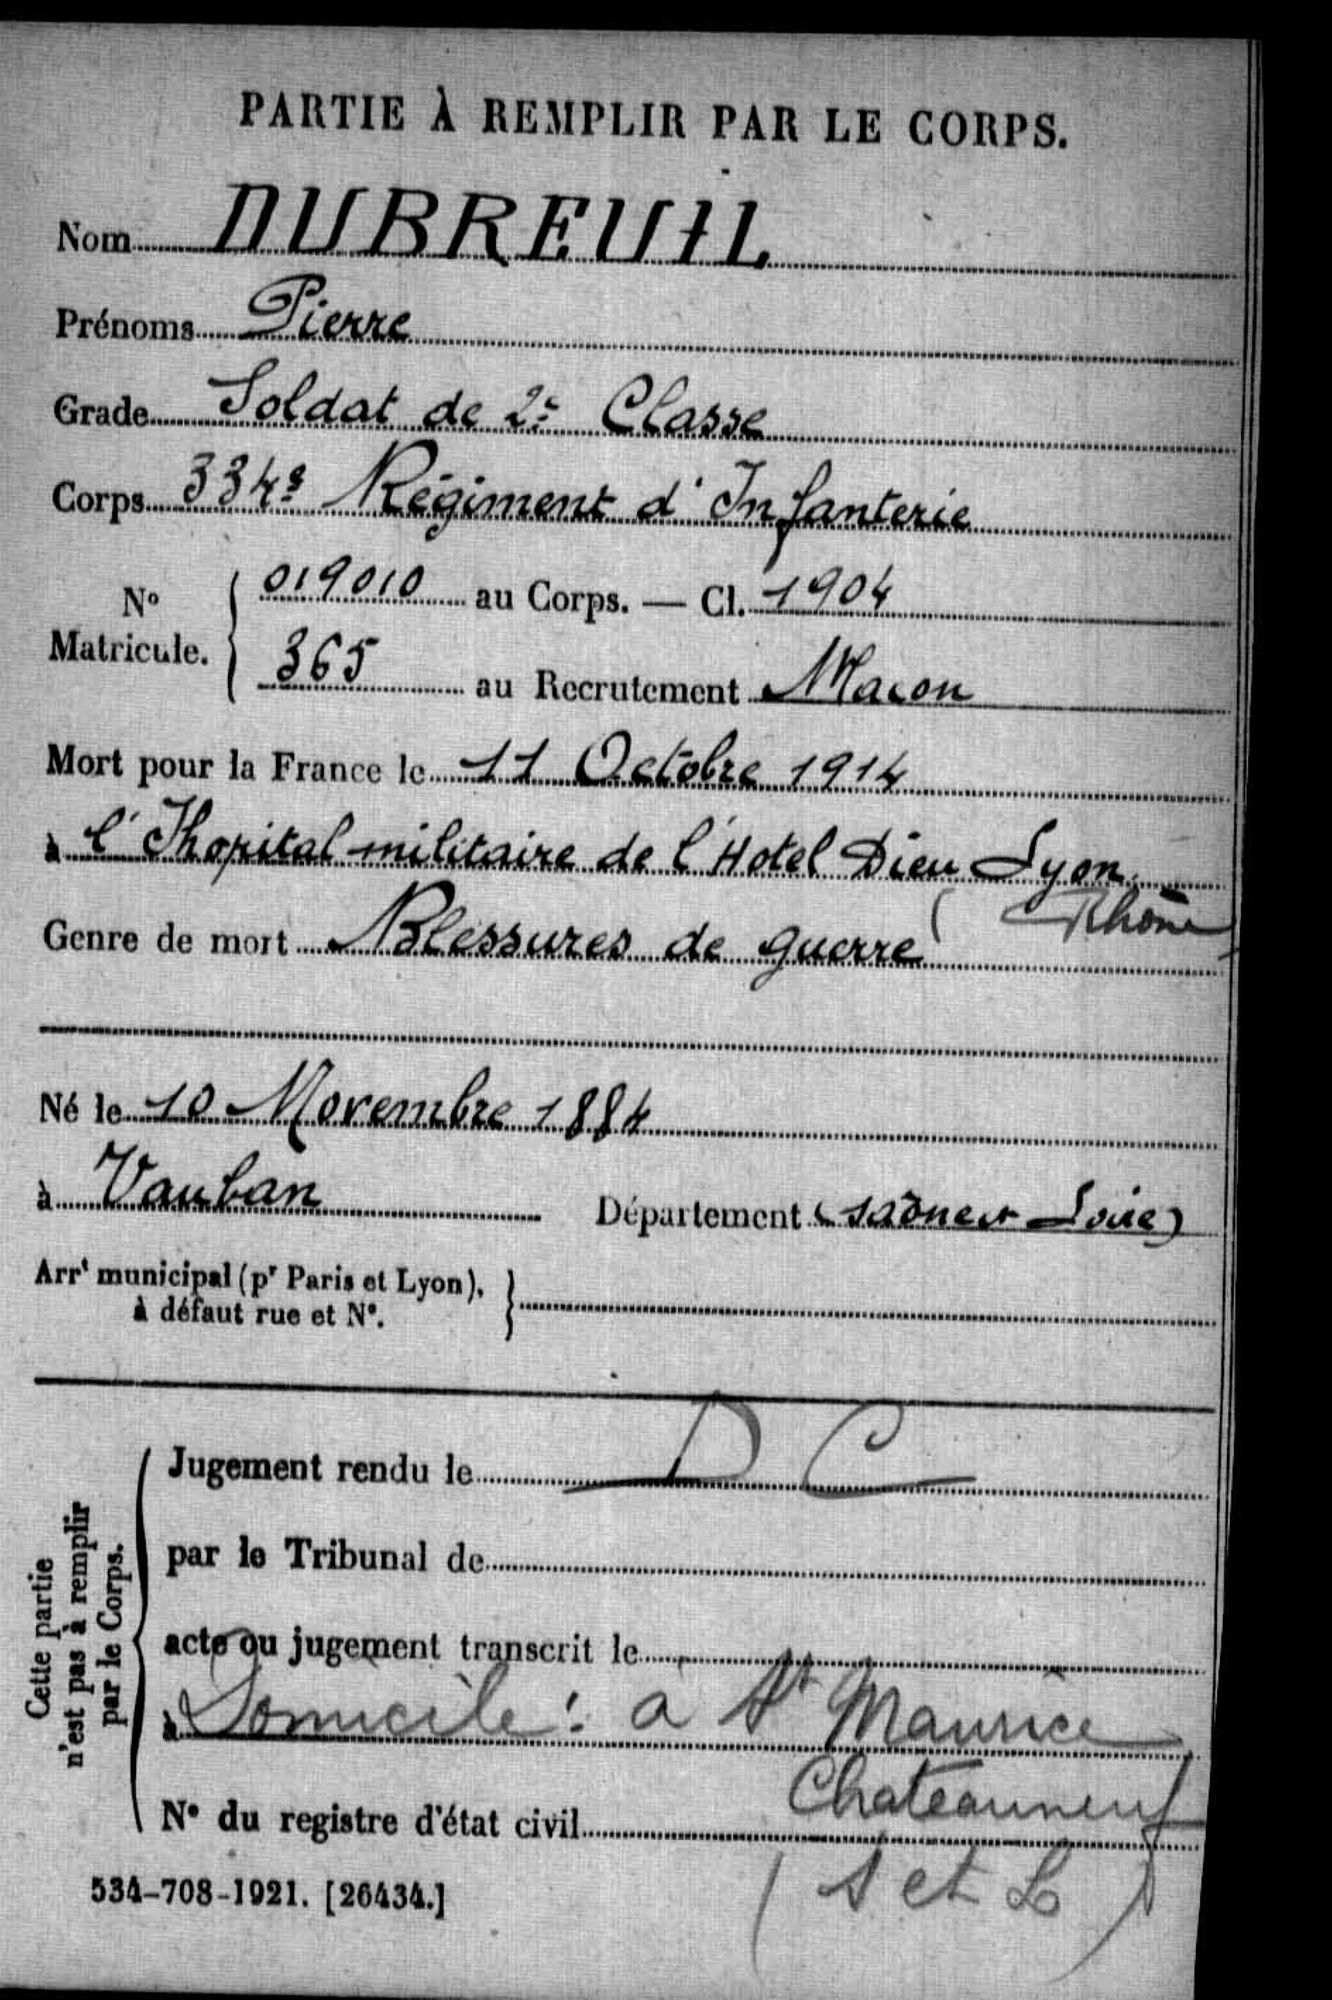 PARTIE À REMPLIR PAR LE CORPS.
Nom DUBREUIL
Prénoms Pierre
Grade Soldat de 2e Classe
Corps 334e Régiment d'Infanterie
No Matricule. 019010 au Corps. — Cl. 1904
365 au Recrutement Macon
Mort pour la France le 11 Octobre 1914
à l'Hopital militaire de l'Hotel Dieu Lyon
(Rhône)
Genre de mort Blessures de guerre
Né le 10 Novembre 1884
à Vauban Département (Saône et Loire)
Arrt municipal (pr Paris et Lyon), à défaut rue et No.
Cette partie n'est pas à remplir par le Corps.
Jugement rendu le D C
par le Tribunal de
acte ou jugement transcrit le
à Domicile : à St Maurice
Chateauneuf
No du registre d'état civil
(S et L)
534-708-1921. [26434.]